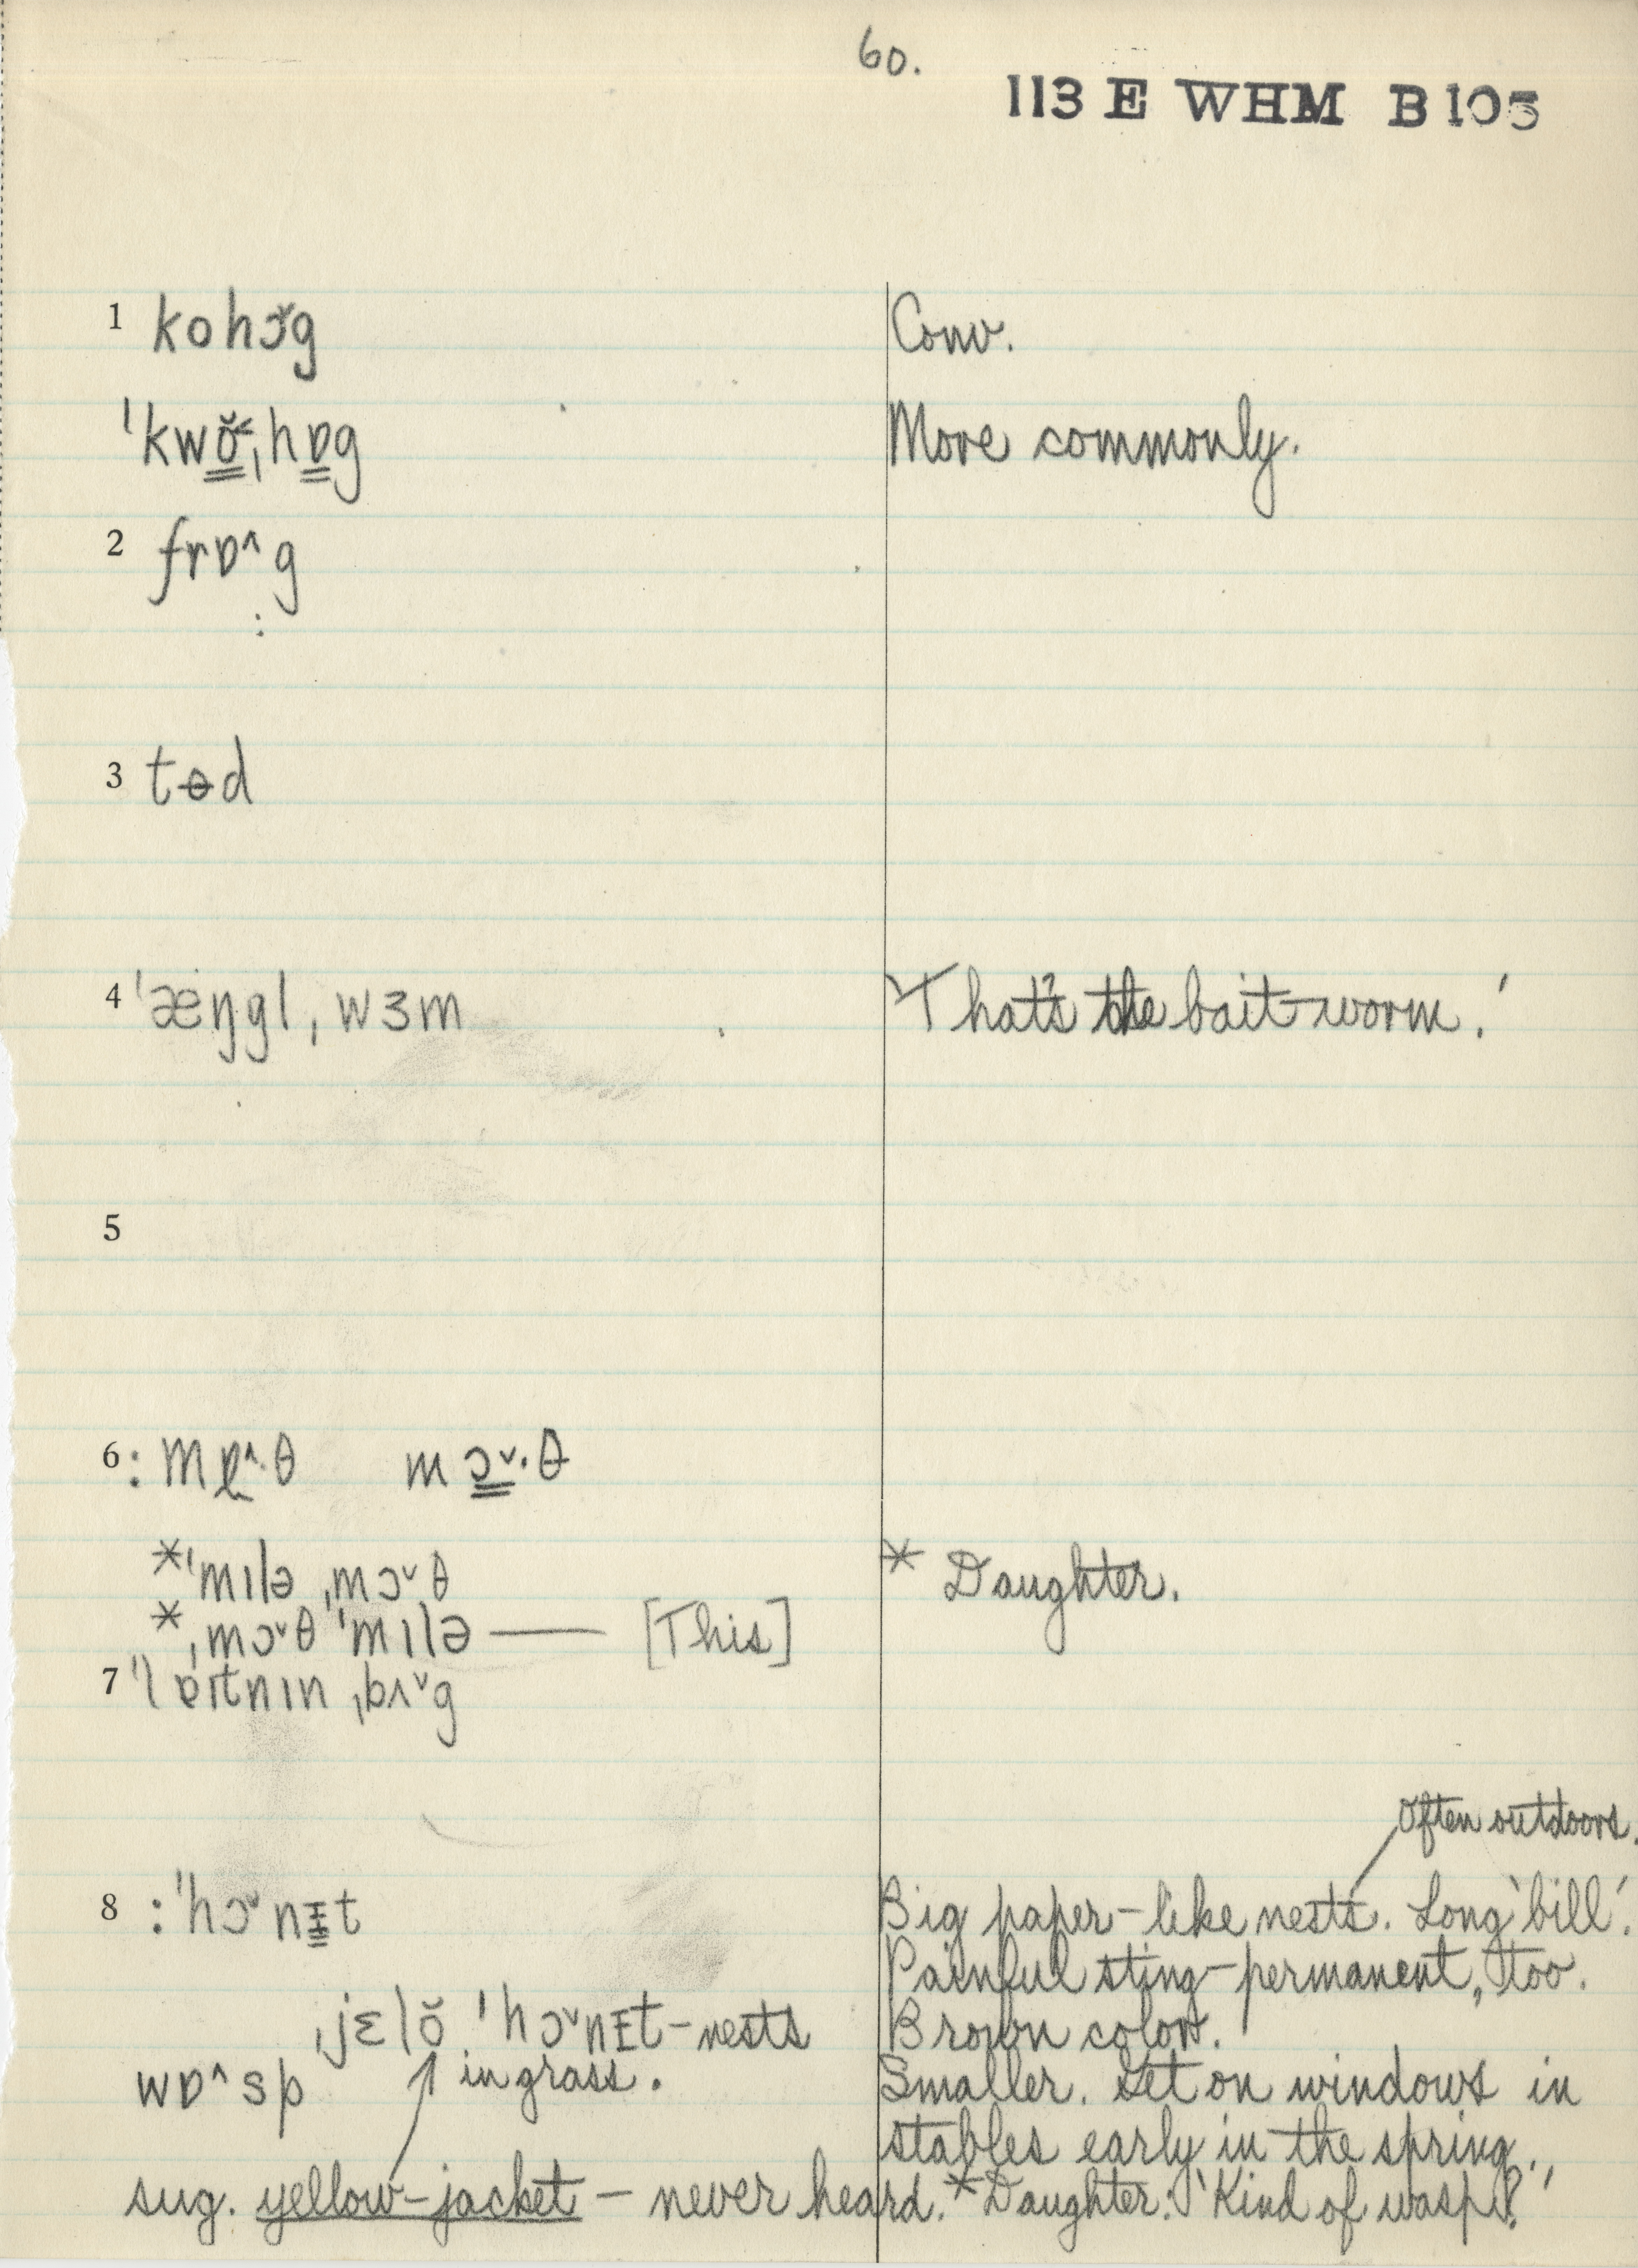 60.
113 E WHM B 105
1 kohɔ̌g Conv.
ˈkwŏ̳˂ˌhɒ̳g More commonly.
2 frɒ˄g
:
3 tɵd
4 ˈæŋglˌwɜm 'That's the bait-worm.'
5
6 : m ˄·θ mɔ̳˅·θ
*ˈmɪləˌmɔ˅θ * Daughter.
*ˌmɔ˅θˈmɪlə — [This]
7 ˈlɐɪtnɪnˌbʌ˅g
Often outdoors.
8 :ˈhɔ˅nɪ̵̳t Big paper-like nests. Long 'bill'.
Painful sting-permanent, too.
ˌjɛlŏˈhɔ˅nɪ̵t-nests Brown color.
wɒ˄sp in grass. Smaller. Set on windows in
stables early in the spring.
sug. yellow-jacket — never heard. *Daughter: 'Kind of wasp?'